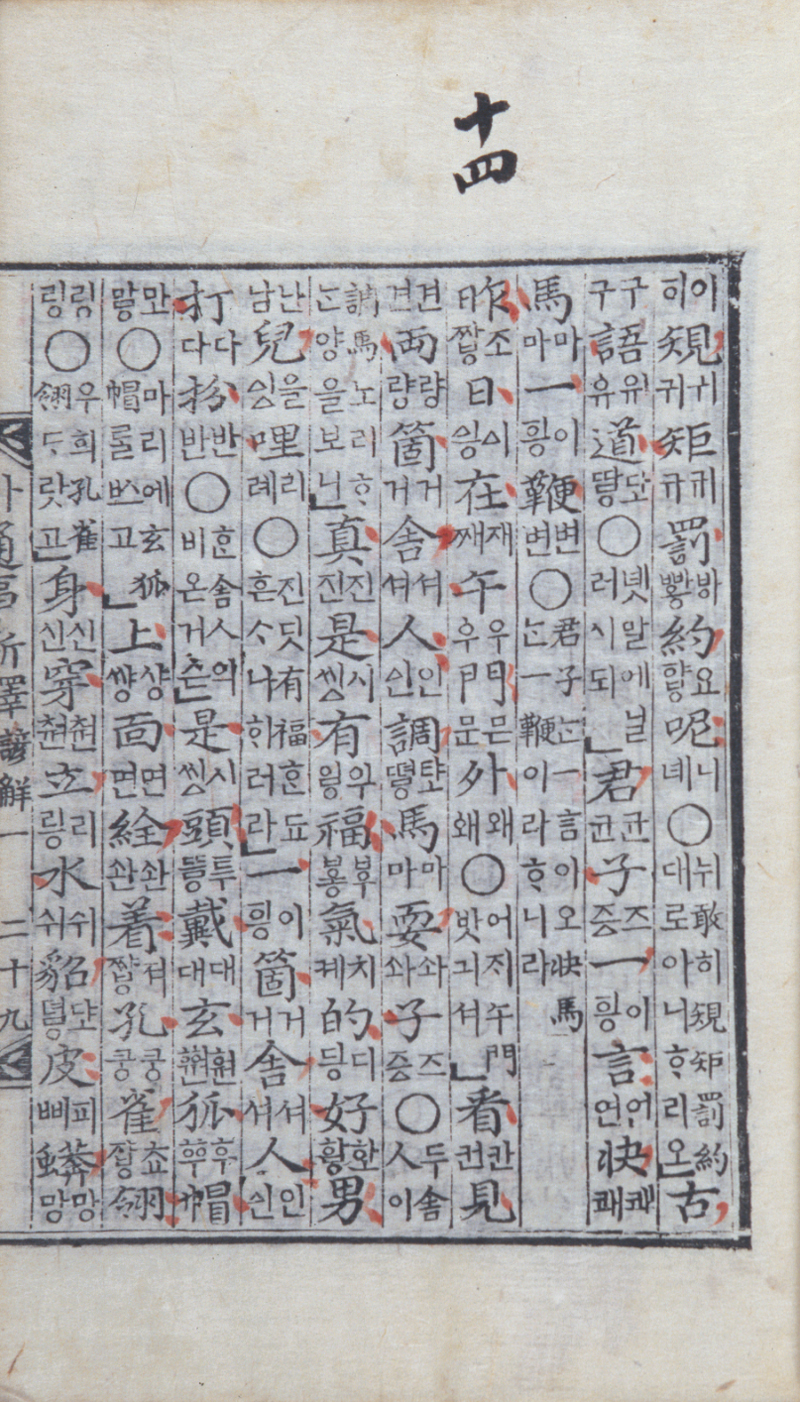 十四
이히規귀귀矩규뀨罰방빵約요향呢니녜○뉘敢히規矩罰約대로아니ᄒᆞ리오古
구구語유유道닾땋○녯말에닐러시되君균균子즈증一이힁言연언快쾌쾌
馬마마一이힁鞭변변○君子ᄂᆞᆫ一言이오快馬ᄂᆞᆫ一鞭이라ᄒᆞ니라
昨조짷日이싱在재째午우우門믄문外왜왜○어지午門밧긔셔看칸컨見
견견兩량량箇거거舍셔셔人인인調탸뗳馬마마耍솨솨子즈증○두舍人이
調馬노리ᄒᆞᄂᆞᆫ양을보니真진진是시씽有위잏福부봉氣치켸的디딍好화황男
난남兒을잉哩리례○진딧有福ᄒᆞᆫ됴흔ᄉᆞ나희러라一이힁箇거거舍셔셔人인인
打다다扮반반○ᄒᆞᆫ舍人의비온거슨是시씽頭투뜽戴대대玄狐후帽
만말○마리에玄狐帽ᄅᆞᆯᄡᅳ고上샹썅面면면絟솬솬着孔쿵쿵雀쵸쟣翎
링링○우희孔雀翎ᄃᆞ랏고身신신穿쳔쳔立리링水쉬쉬貂皮피삐蟒망망
通事新釋諺解一 二十九